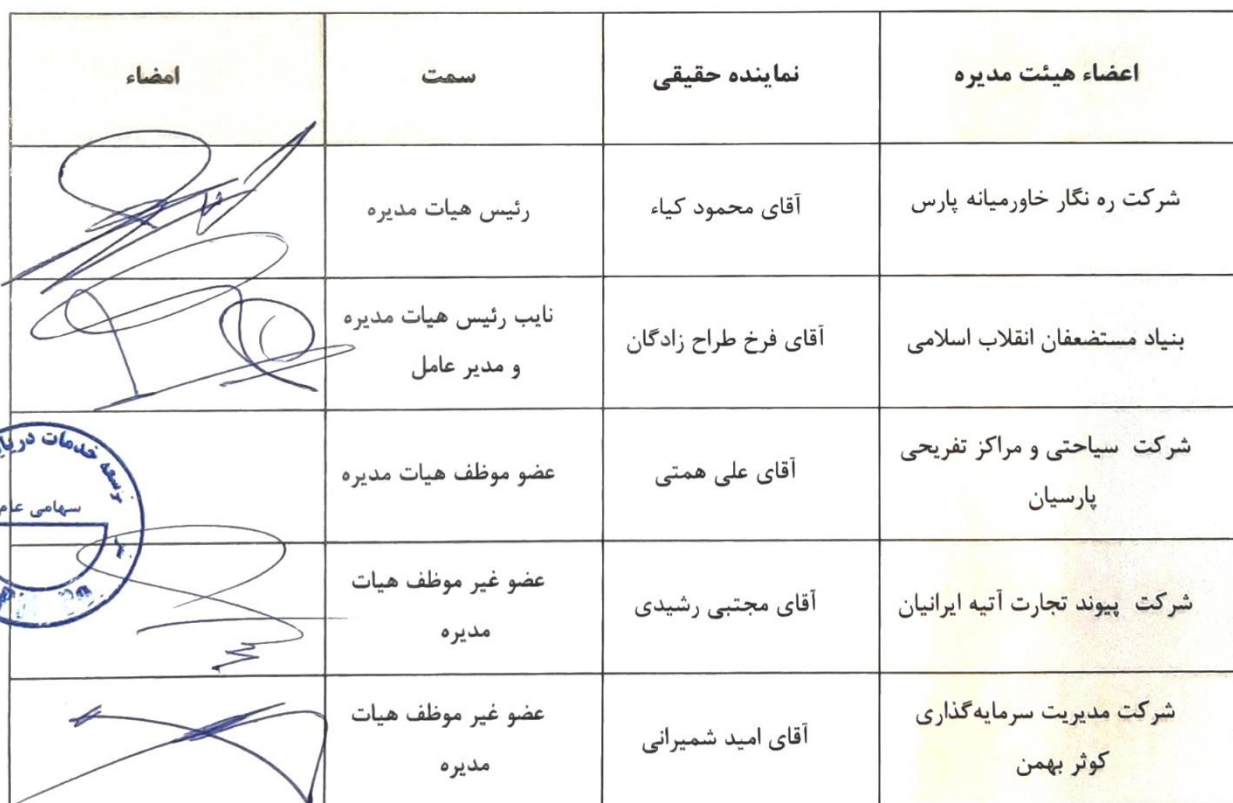 اعضاء هیئت مدیره	نماینده حقیقی	سمت	امضاء
شرکت ره نگار خاورمیانه پارس	آقای محمود کیاء	رئیس هیات مدیره
بنیاد مستضعفان انقلاب اسلامی	آقای فرخ طراح زادگان	نایب رئیس هیات مدیره
و مدیر عامل
شرکت سیاحتی و مراکز تفریحی
پارسیان	آقای علی همتی	عضو موظف هیات مدیره
شرکت پیوند تجارت آتیه ایرانیان	آقای مجتبی رشیدی	عضو غیر موظف هیات
مدیره
شرکت مدیریت سرمایه‌گذاری
کوثر بهمن	آقای امید شمیرانی	عضو غیر موظف هیات
مدیره
خدمات
سهامی عام